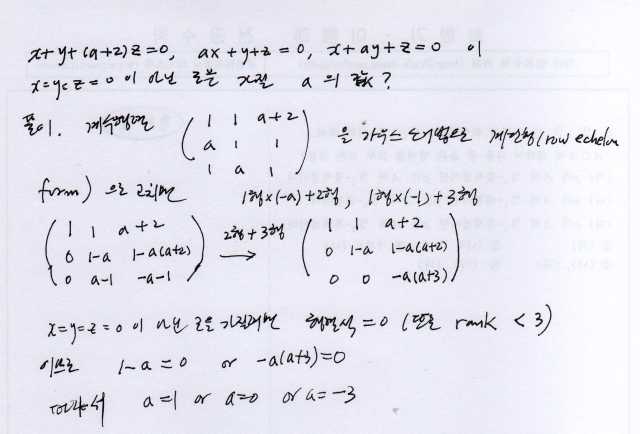 x+y+(a+2)z=0, ax+y+z=0, x+ay+z=0 이
x=y=z=0 이 아닌 근을 가질 a의 값?
풀이. 계수행렬 ( 1 1 a+2 ; a 1 1 ; 1 a 1 ) 을 가우스 소거법으로 계단형(row echelon
form) 으로 고치면 1행×(-a)+2행, 1행×(-1)+3행
( 1 1 a+2 ; 0 1-a 1-a(a+2) ; 0 a-1 -a-1 ) 2행+3행 → ( 1 1 a+2 ; 0 1-a 1-a(a+2) ; 0 0 -a(a+3) )
x=y=z=0 이 아닌 근을 가질려면 행렬식=0 (또는 rank < 3)
이므로 1-a=0 or -a(a+3)=0
따라서 a=1 or a=0 or a=-3